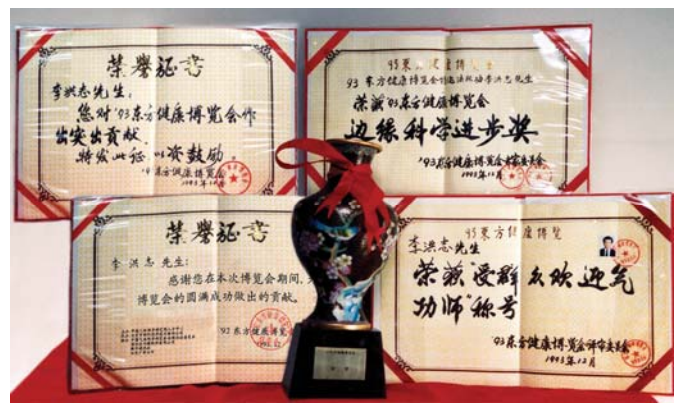 荣誉证书
李洪志先生：
您对'93东方健康博览会作
出突出贡献，
特发此证，以资鼓励。
1993年12月
93東方健康博览会
93东方健康博览会
李洪志先生
荣获'93东方健康博览会
边缘科学进步奖
'93东方健康博览会
1993年12月
荣誉证书
李洪志先生：
感谢您在本次博览会期间，
博览会的圆满成功做出的贡献。
'93东方健康博览会
1993.12
93東方健康博览
李洪志先生
荣获"受群众欢迎气
功师"称号
'93东方健康博览会评审委员会
1993年12月